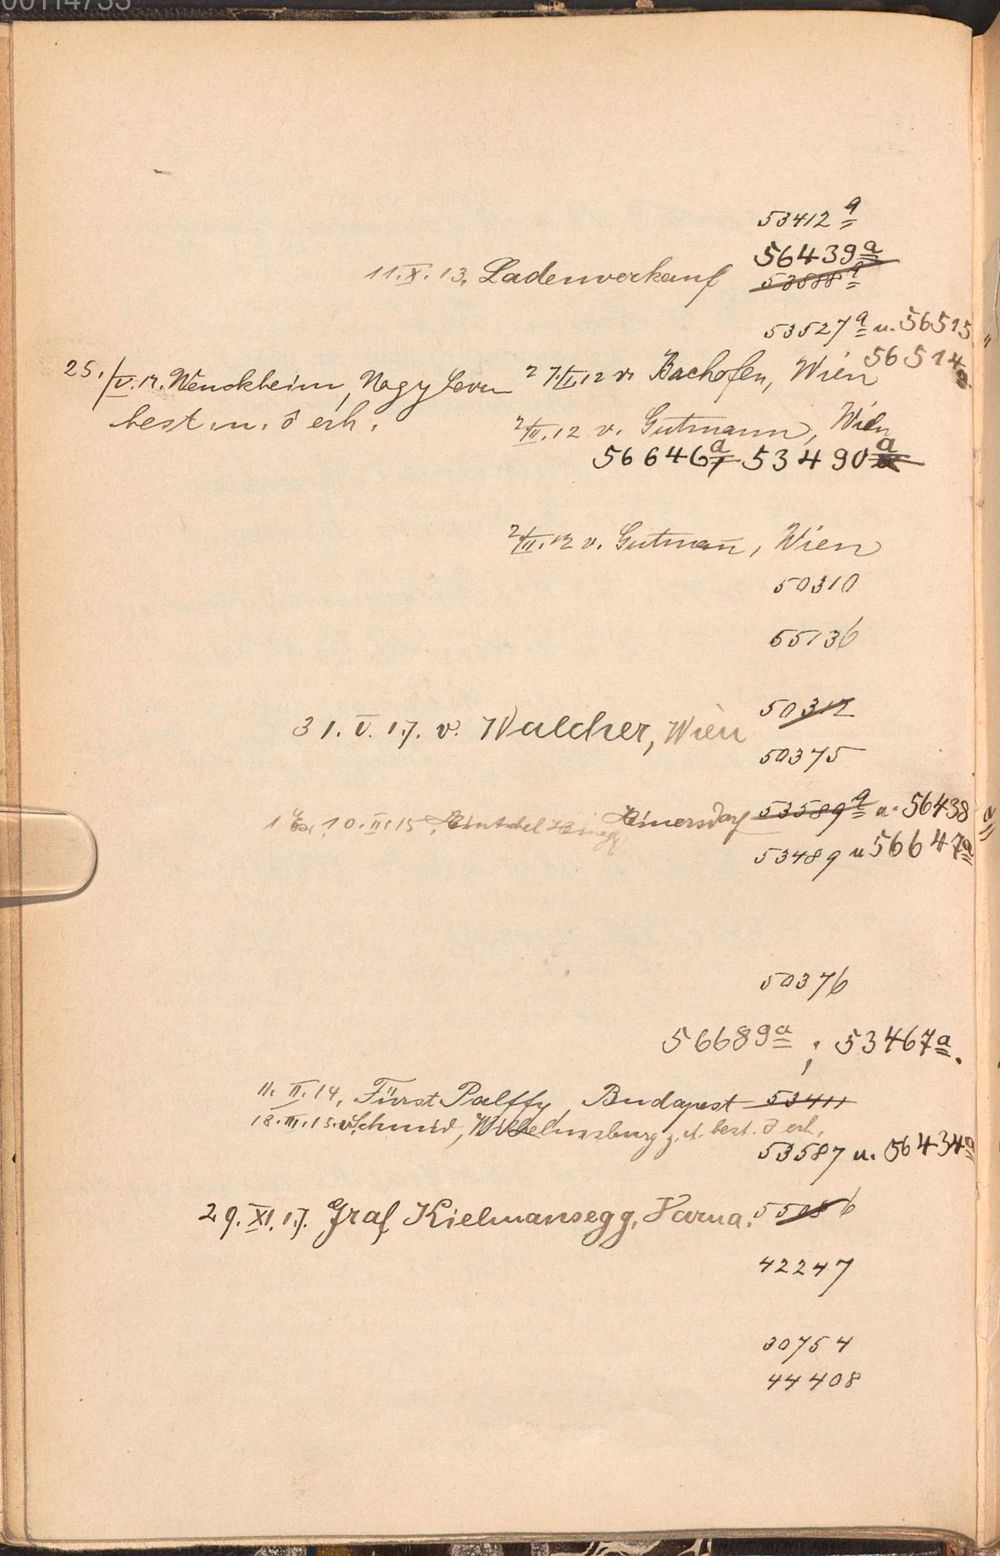 00114733
53412 a
56439 a
11. X. 13. Ladenverkauf 53588 a
53527 a u. 56515
56514
25./V. 12. Wenckheim, Nagy 27./I. 12 v. Bachofen, Wien
best. u. ō erh. 2/IV. 12 v. Gutmann, Wien
56646 a 53490 a
2/II. 12 v. Gutmann, Wien
50310
55136
50312
31. V. 17. v. Walcher, Wien
50375
1 Ex. 10. II. 15. Einersdorf 53589 a u. 56438 a
53489 u 56647 a
50376
56689 a ; 53467 a.
11. II. 14, Fürst Palffy, Budapest 53411
18. III. 15. v. Schmid, Wilhelmsburg z. A. best. ō erh.
53587 u. 56434 a
29. XI. 17. Graf Kielmansegg, Varna. 55086
42247
30754
44408